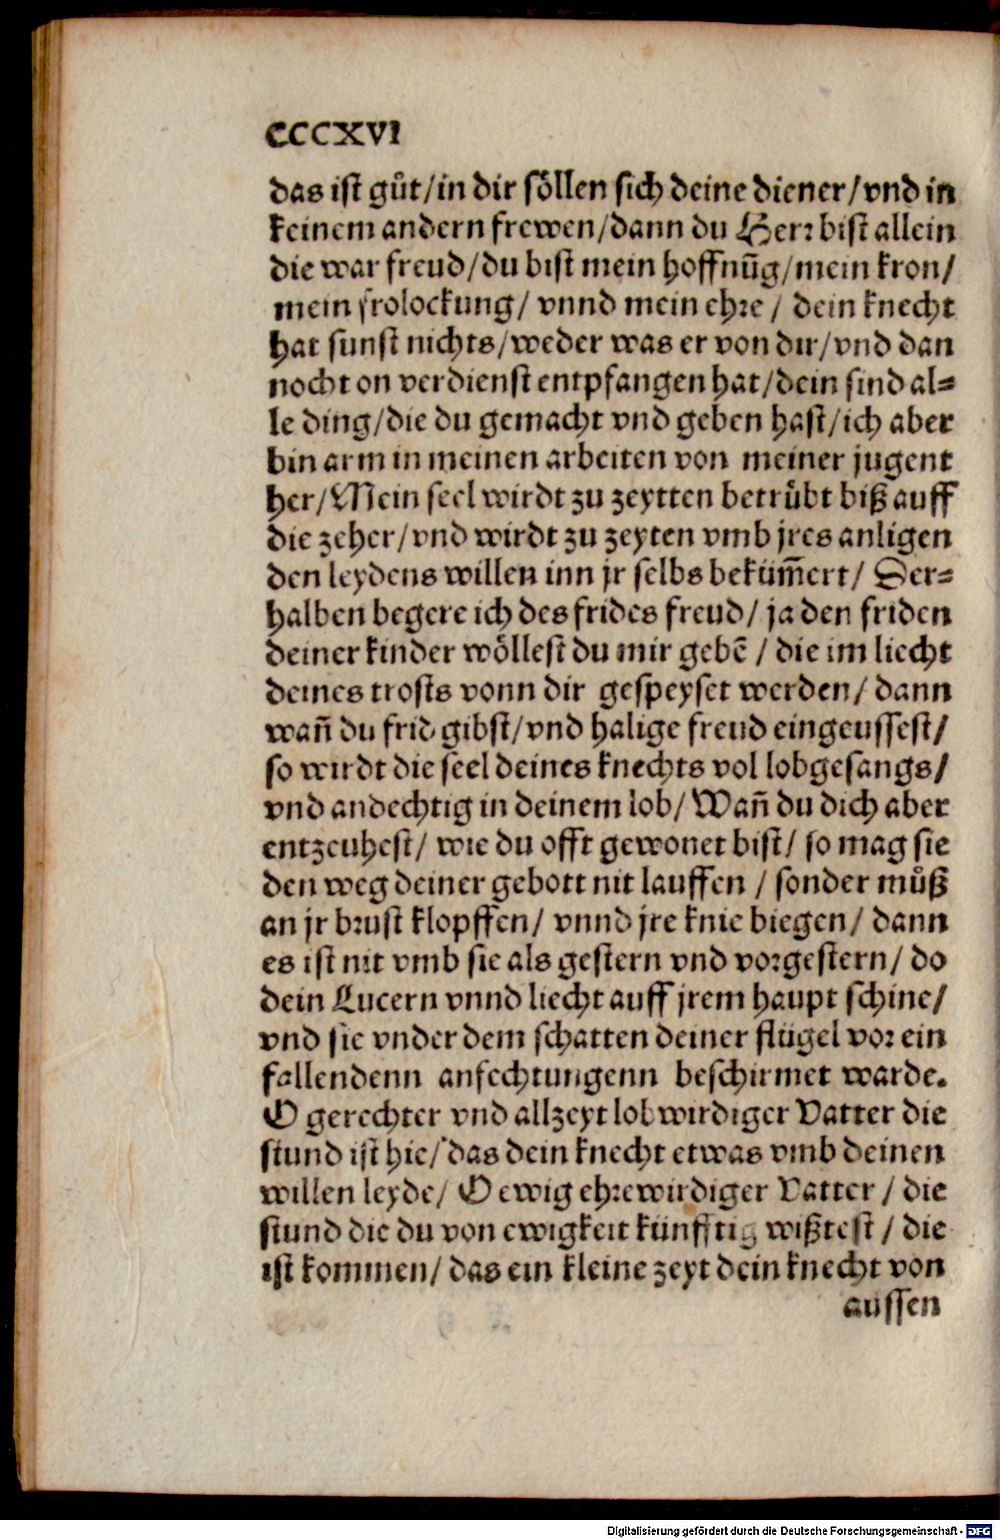 CCCXVI
das ist gůt/in dir söllen sich deine diener/vnd in
keinem andern frewen/dann du Herr bist allein
die war freud/du bist mein hoffnūg/mein kron/
mein frolockung/ vnnd mein ehre / dein knecht
hat sunst nichts/weder was er von dir/vnd dan
nocht on verdienst entpfangen hat/dein sind al⸗
le ding/die du gemacht vnd geben hast/ich aber
bin arm in meinen arbeiten von meiner jugent
her/Mein seel wirdt zu zeytten betrůbt biß auff
die zeher/vnd wirdt zu zeyten vmb jres anligen
den leydens willen inn jr selbs beküm̄ert/ Der⸗
halben begere ich des frides freud/ ja den friden
deiner kinder wöllest du mir gebē / die im liecht
deines trosts vonn dir gespeyset werden/ dann
wañ du frid gibst/vnd halige freud eingeussest/
so wirdt die seel deines knechts vol lobgesangs/
vnd andechtig in deinem lob/ Wañ du dich aber
entzeuhest/ wie du offt gewonet bist/ so mag sie
den weg deiner gebott nit lauffen / sonder můß
an jr brust klopffen/ vnnd jre knie biegen/ dann
es ist nit vmb sie als gestern vnd vorgestern/ do
dein Lucern vnnd liecht auff jrem haupt schine/
vnd sie vnder dem schatten deiner flügel vor ein
fallendenn anfechtungenn beschirmet warde.
O gerechter vnd allzeyt lobwirdiger Vatter die
stund ist hie/ das dein knecht etwas vmb deinen
willen leyde/ O ewig ehrewirdiger Vatter / die
stund die du von ewigkeit künfftig wißtest / die
ist kommen/ das ein kleine zeyt dein knecht von
aussen
Digitalisierung gefördert durch die Deutsche Forschungsgemeinschaft - DFG